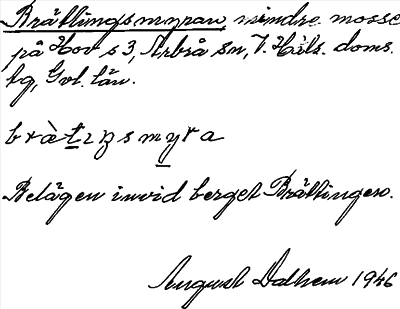 Brätlingsmyran, mindre mosse
på Hov s 3, Arbrå sn, V. Häls. doms.
tg, Gvl. län.
brät̲ıŋsmy̲ra
Belägen invid berget Brätlingen.
August Dalhem 1946